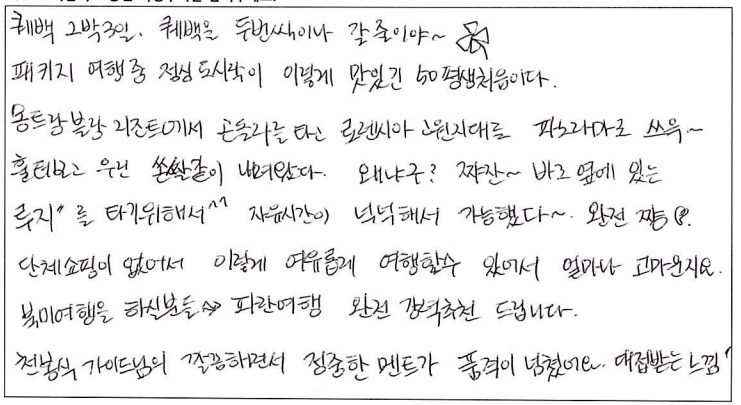 퀘백 2박3일. 퀘백을 두번씩이나 갈 줄이야~
패키지 여행중 점심 도시락이 이렇게 맛있긴 50평생처음이다.
몽트랑블랑 리조트에서 곤돌라를 타고 로렌시아 고원지대를 파노라마로 쓰윽~
훑터보고 우린 쏜쌀같이 내려왔다. 왜냐구? 쨔잔~ 바로 옆에 있는
루지" 를 타기위해서^^ 자유시간이 넉넉해서 가능했다~. 완전 짱
단체쇼핑이 없어서 이렇게 여유롭게 여행할수 있어서 얼마나 고마운지요.
북미여행을 하실분들 파란여행 완전 강력추천 드립니다.
천봉식 가이드님의 깔끔하면서 정중한 멘트가 품격이 넘쳤어요. 대접받는 느낌^